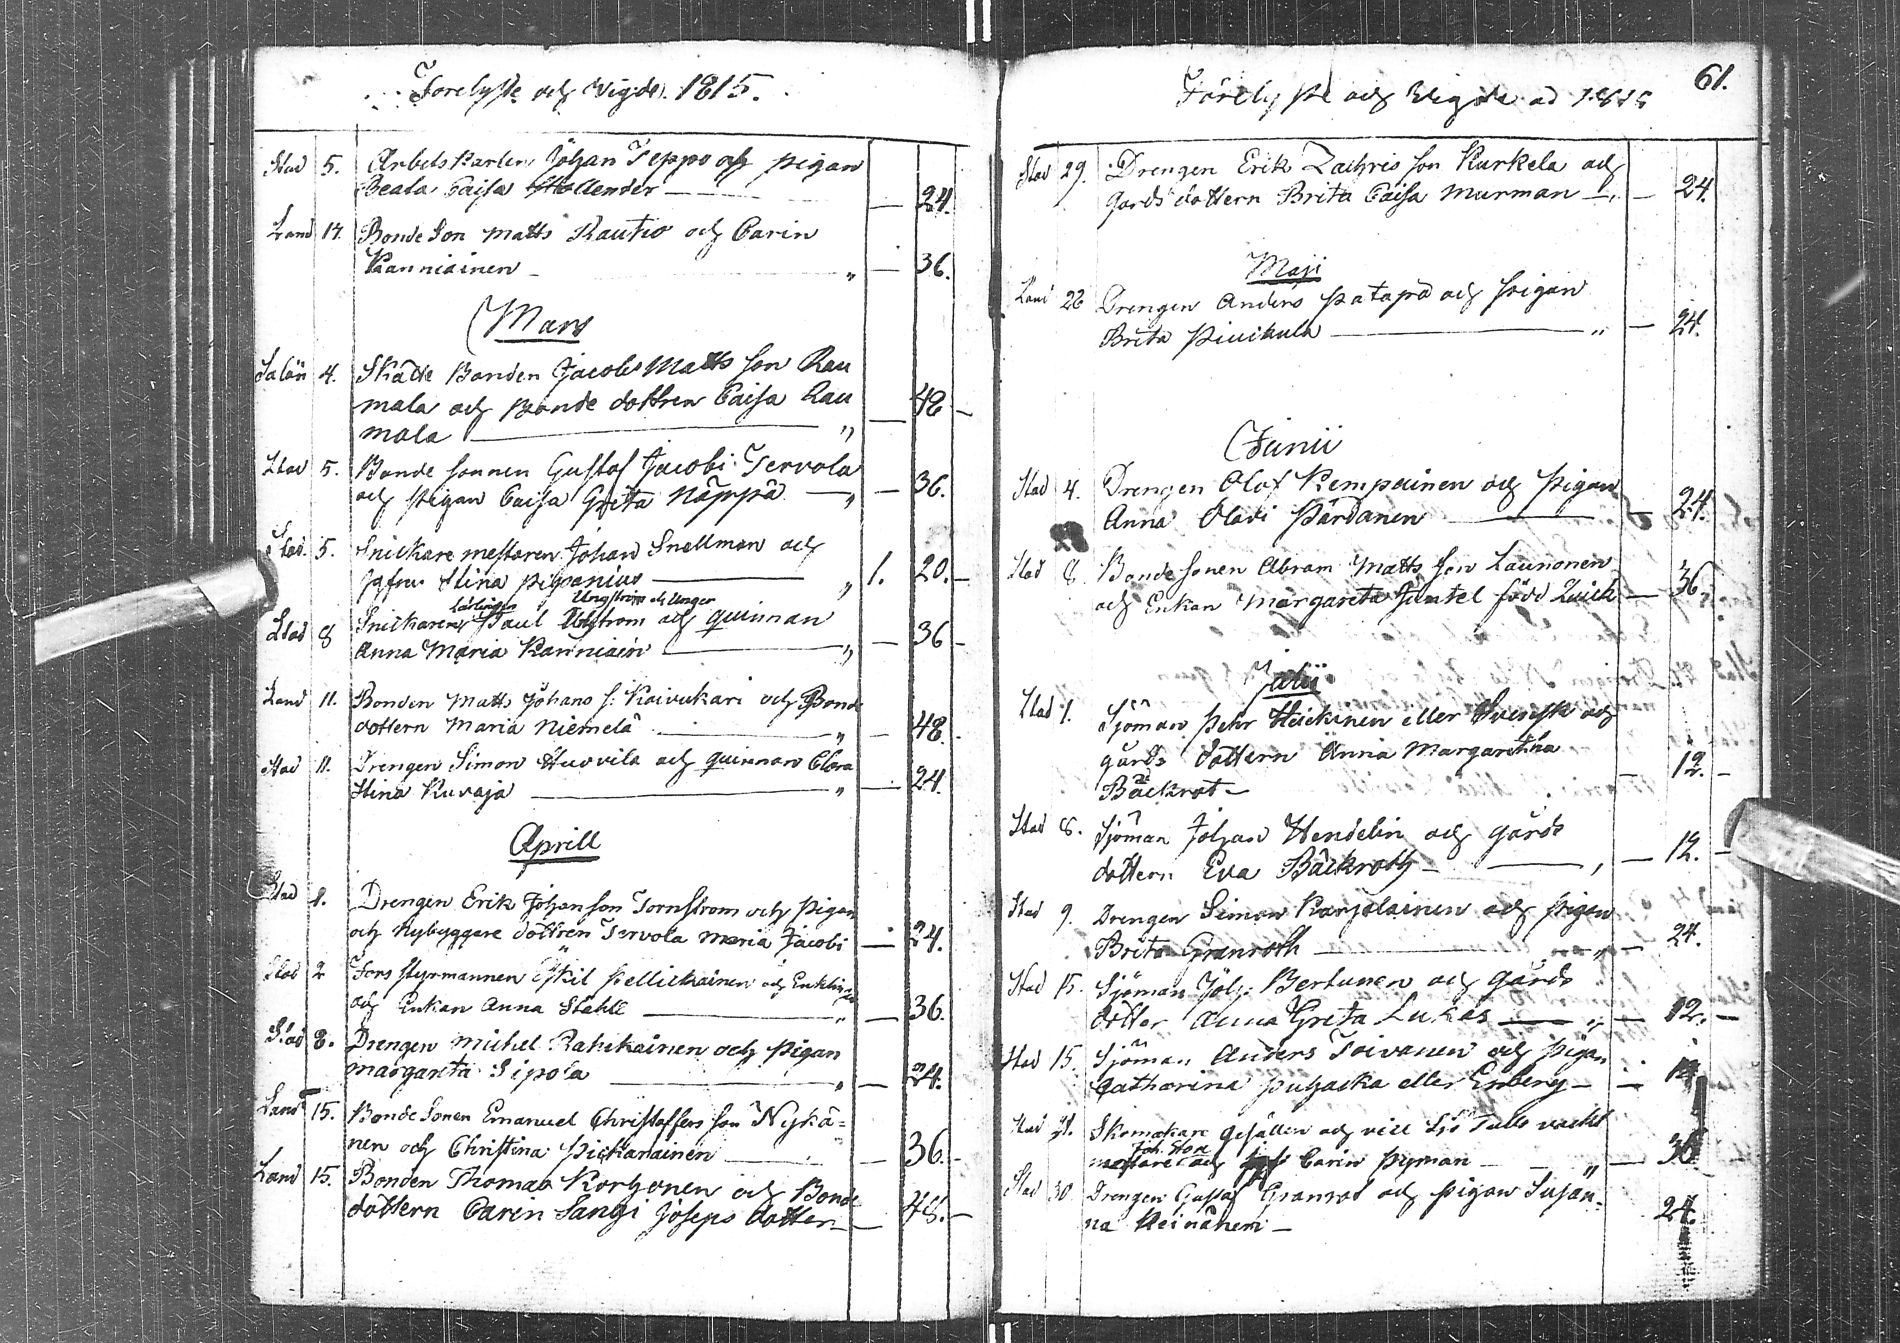 Förelyste och Vigde 1815.
Stad 5. Arbets Karlen Johan Teppo och pigan
Beata Caisa Hollender — 24.
Land 17. Bonde Son Matts Rautio och Carin
Kanniainen — 36.
Mars
Salön 4. Skatte Bonden Jacob Matts Son Rau
mala och Bonde dottren Caisa Rau
mala — 48
Stad 5. Bonde Sonnen Gustaf Jacobi Tervola
och pigan Caisa Greta Näppä — 36.
Stad 5. Snickare mestaren Johan Snellman och
Jgfru Stina — 1. 20.
lärlingen Ungström och Unger
Stad 8 Snickaren Paul och quinnan
Anna Maria Kanniain — 36
Land 11. Bonden Matts Johans S: Koivukari och Bonde
dottern Maria Niemelä — 48.
Stad 11. Drengen Simon Huovila och quinnan Clara
Stina Kuvaja — 24.
Aprill
Stad 1. Drengen Erik Johan Son Tornstrom och Pigan
och Nybyggare dottren Tervola Maria Jacobi — 24.
Stad 2 Fors styrmannen Eskil Pellickainen och Enkling
och Enkan Anna Ståhle — 36.
Stad 8. Drengen Michel Rahikainen och Pigan
Margareta Sipola — 24.
Land 15. Bonde Sonen Emanuel Christoffers Son Nykä=
nen och Christina Pickarainen — 36.
Land 15. Bonden Thomas Korhonen och Bonde
dottern Carin Sangi Joseps dotter — 48.
61.
Förelyste och Vigde ad 1815
Stad 29. Drengen Erik Zachris Son Kurkela och
Gards dottern Brita Caisa Murman — 24.
Maji
Land 26 Drengen Anders Patapa och Pigan
Brita — 24.
Junii
Stad 4. Drengen Olof Kempainen och Pigan
Anna Olavi Pårdanen — 24.
Stad 8 Bonde Sonen Abram Matts Son Launonen
och Enkan Margareta född — 36
Julii
Stad 1. Sjöman Pehr Heickinen eller Svensk och
gårds dottern Anna Margaretha
Bäckrot — 12.
Stad 8. Sjöman Johan Hendelin och gårds
dottern Eva Bäckroth — 12.
Stad 9. Drengen Simon Karjalainen och Pigan
Brita Granroth — 24.
Stad 15. Sjöman Joh: Bertunen och gårds
dotter Anna Greta Lukas — 12.
Stad 15. Sjöman Anders Toivanen och Pigan
Catharina Puhacka eller Enberg — 12
Stad 21. Skomakare Gesällen och
och Carin Pyman — 36
Stad 30. Drengen Gustaf Granrot och Pigan Susan=
na Keinänen — 24